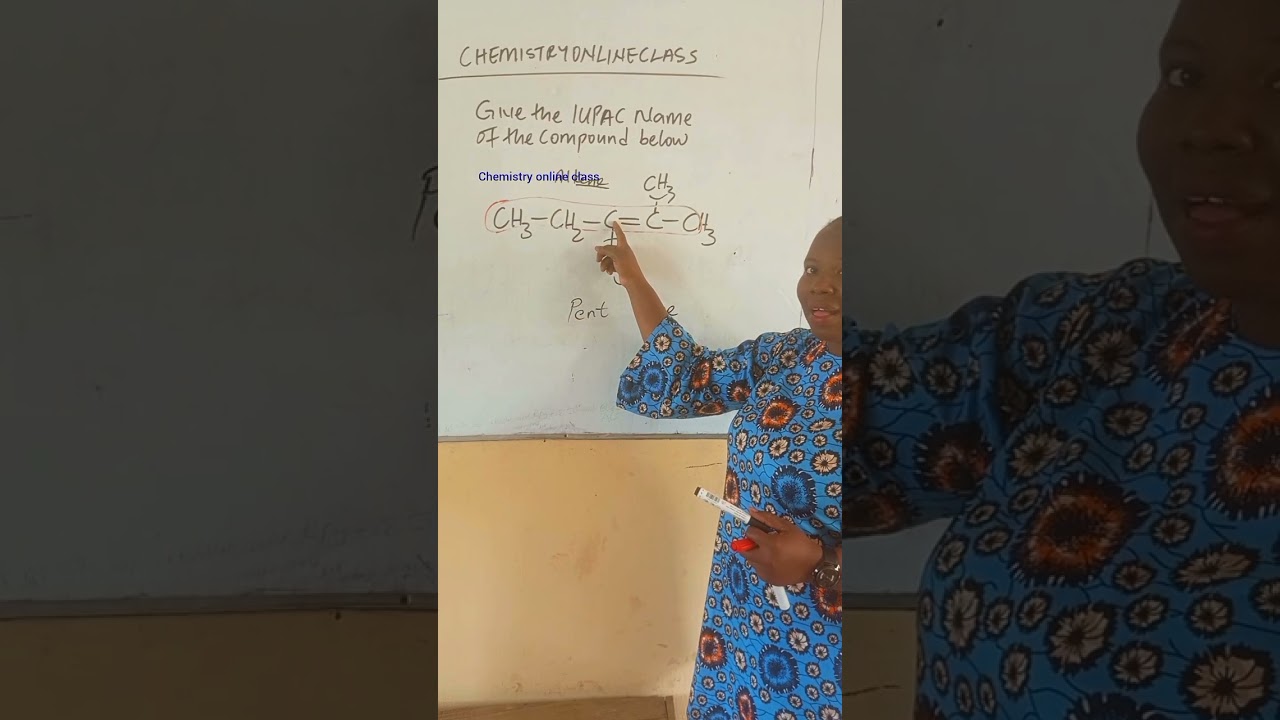 CHEMISTRYONLINECLASS
Give the IUPAC Name
of the compound below
Chemistry online class
CH3
CH3-CH2-C=C-CH3
Pent e